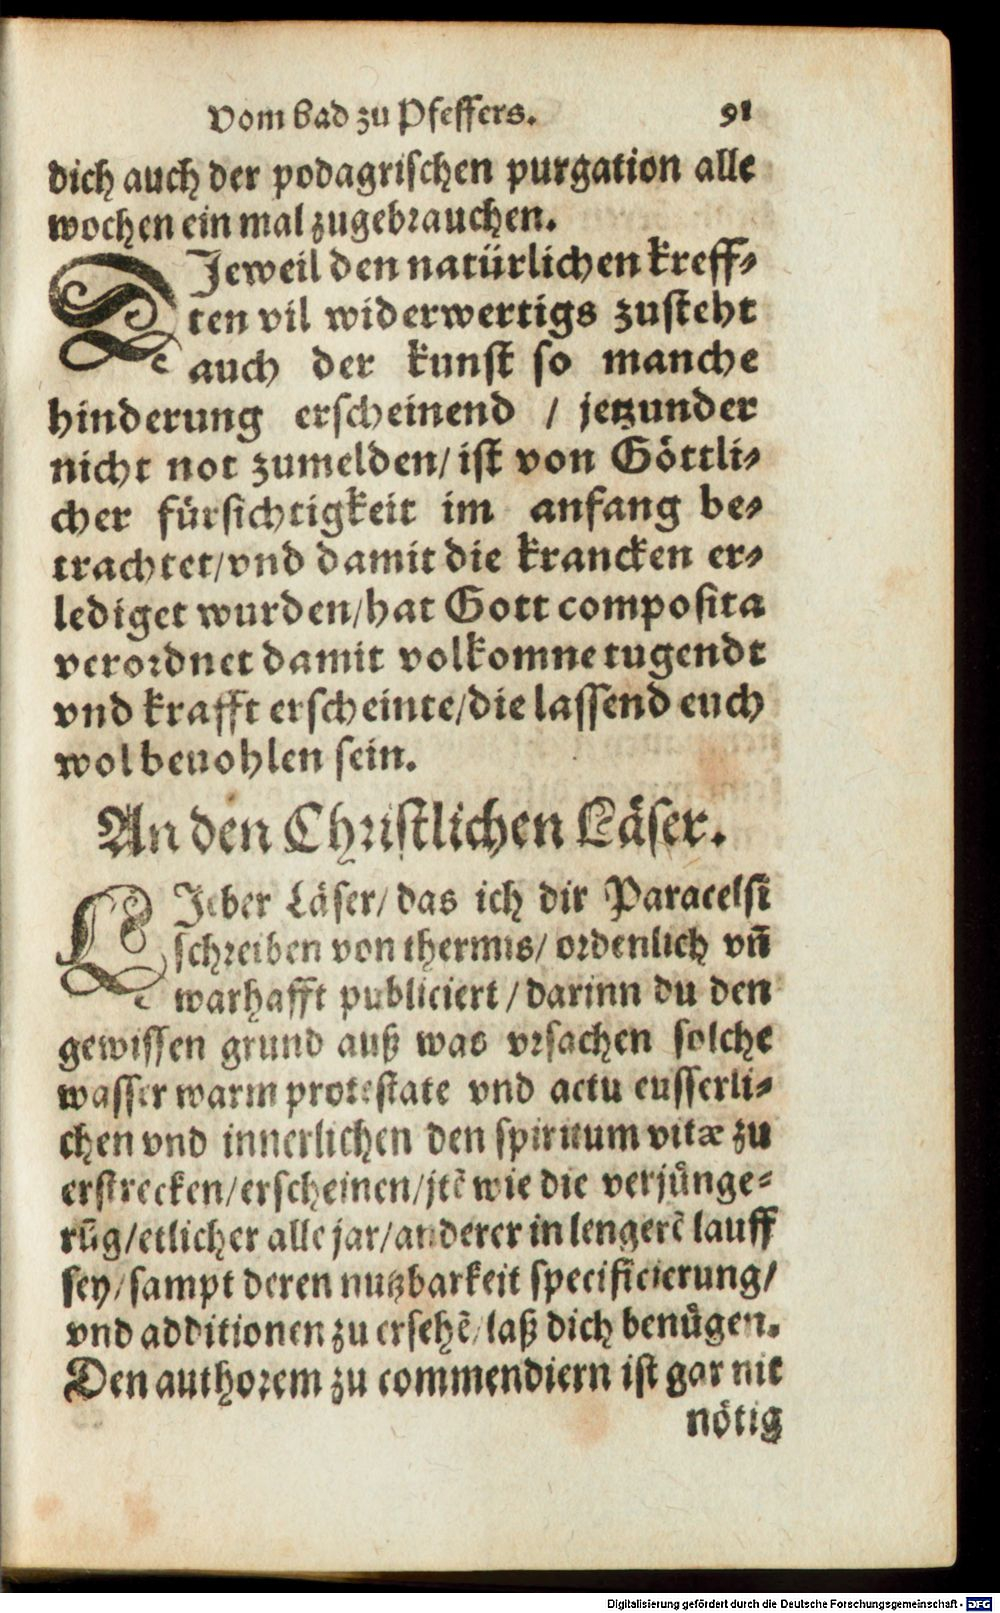 Vom bad zu Pfeffers. 91
dich auch der podagrischen purgation alle
wochen ein mal zugebrauchen.
DJeweil den natürlichen kreff-
ten vil widerwertigs zusteht
auch der kunst so manche
hinderung erscheinend / jetzunder
nicht not zumelden/ ist von Göttli-
cher fürsichtigkeit im anfang be-
trachtet/vnd damit die krancken er-
lediget wurden/hat Gott composita
verordnet damit volkomne tugendt
vnd krafft erscheinte/die lassend euch
wol beuohlen sein.
An den Christlichen Läser.
LJeber Läser/ das ich dir Paracelsi
schreiben von thermis/ ordenlich vñ
warhafft publiciert / darinn du den
gewissen grund auß was vrsachen solche
wasser warm protestate vnd actu eusserli-
chen vnd innerlichen den spiritum vitæ zu
erstrecken/erscheinen/jtẽ wie die verjůnge-
rũg/etlicher alle jar/anderer in lengerẽ lauff
sey/sampt deren nutzbarkeit specificierung/
vnd additionen zu ersehẽ/laß dich benůgen.
Den authorem zu commendiern ist gar nit
nötig
Digitalisierung gefördert durch die Deutsche Forschungsgemeinschaft - DFG